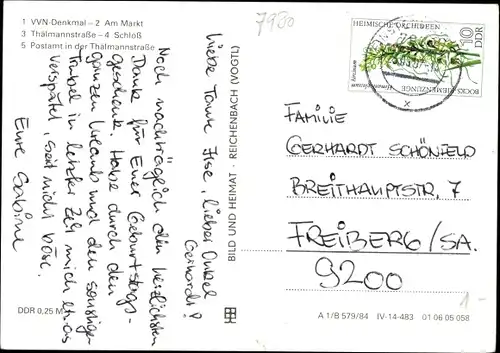 1 VVN-Denkmal – 2 Am Markt
3 Thälmannstraße – 4 Schloß
5 Postamt in der Thälmannstraße
7980
Liebe Tante Ilse, lieber Onkel
Gerhardt!
Noch nachträglich den herzlichsten
Dank für Euer Geburtstags-
geschenk. Habe durch den
ganzen Urlaub und den sonstigen
Trubel in letzter Zeit mich etwas
verspätet, seit nicht böse.
Eure Sabine
DDR 0,25 M
BILD UND HEIMAT · REICHENBACH (VOGTL)
HEIMISCHE ORCHIDEEN
10
DDR
BOCKS-RIEMENZUNGE
Himantoglossum
hircinum
FAMILIE
GERHARDT SCHÖNFELD
BREITHAUPTSTR. 7
FREIBERG/SA.
9200
1-
A 1/B 579/84 IV-14-483 01 06 05 058